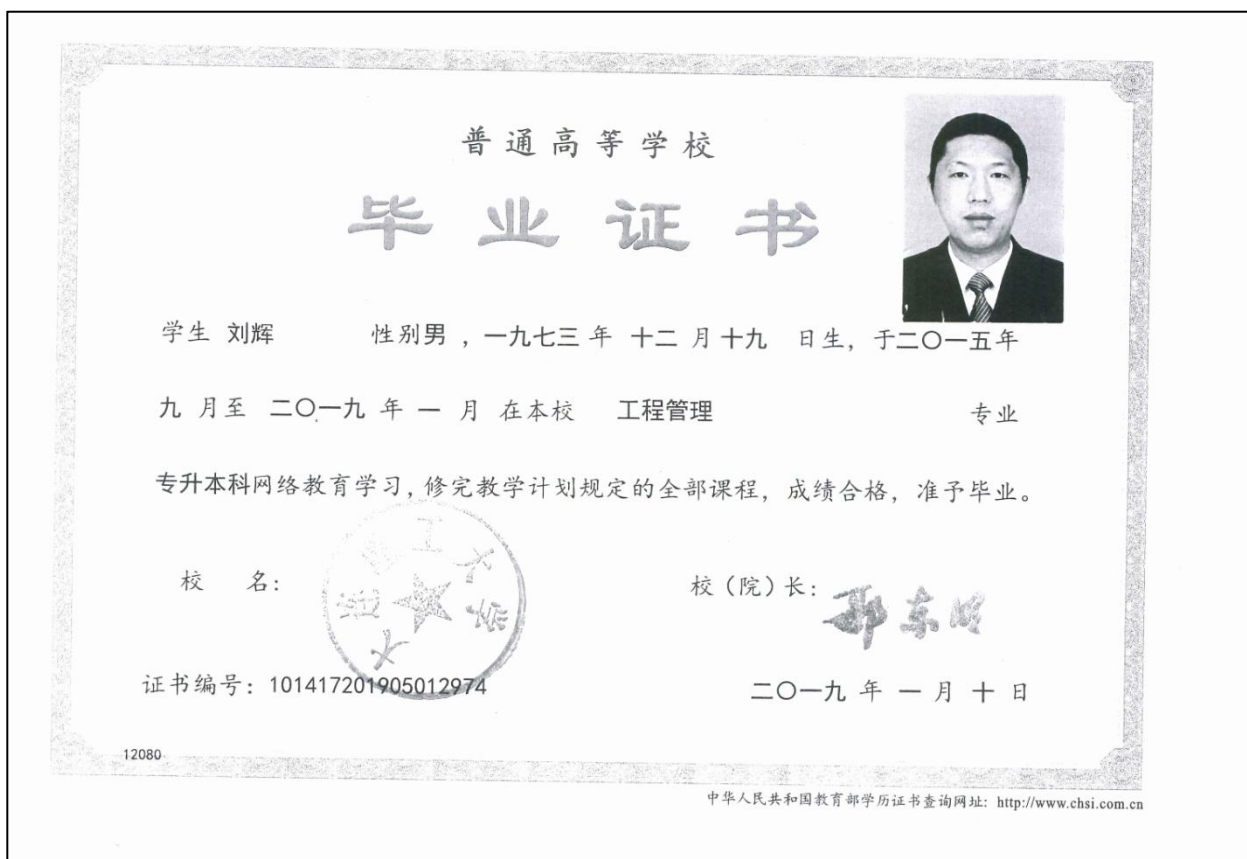 普通高等学校
毕业证书
学生 刘辉 性别男 ，一九七三 年 十二 月 十九 日生，于二〇一五年
九 月至 二〇一九 年 一 月 在本校 工程管理 专业
专升本科网络教育学习，修完教学计划规定的全部课程，成绩合格，准予毕业。
校 名：
大连理工大学
校（院）长：
郭东明
证书编号：101417201905012974
二〇一九 年 一 月 十 日
12080
中华人民共和国教育部学历证书查询网址：http://www.chsi.com.cn